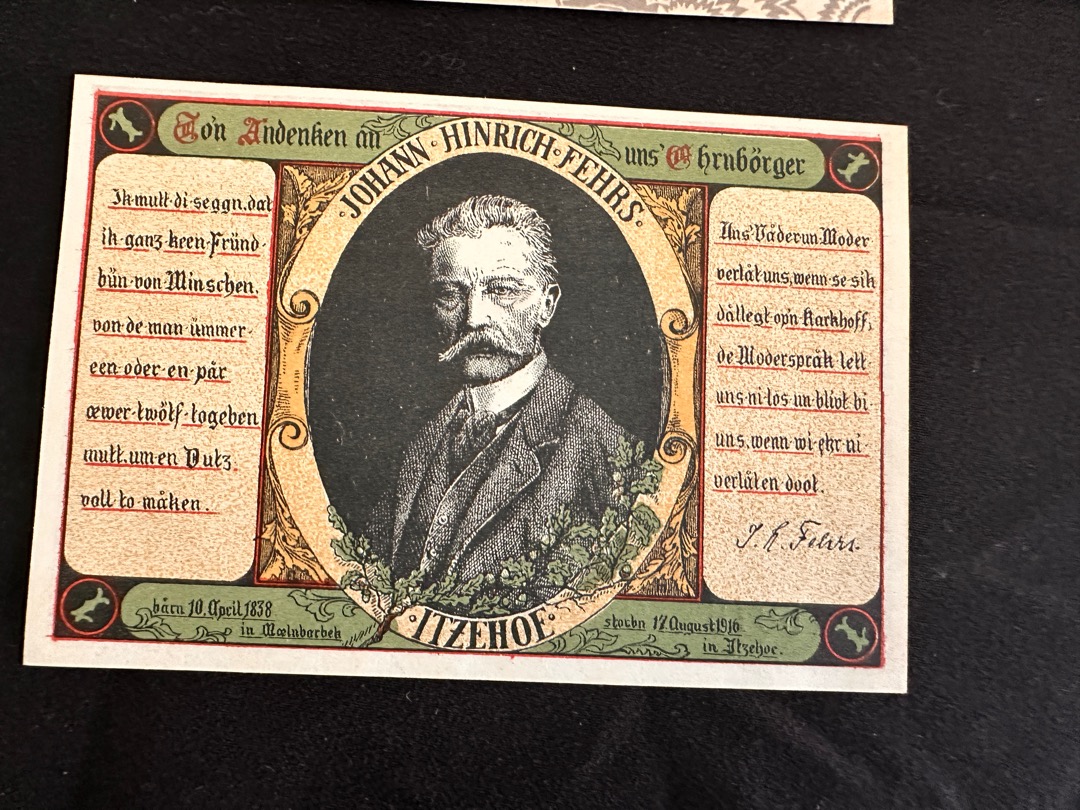 To'n Andenken an
uns' Ehrnbörger
JOHANN · HINRICH · FEHRS ·
Ik · mutt · di · seggn, dat
ik · ganz · keen · Fründ ·
bün · von · Minschen,
von · de · man · ümmer ·
een · oder · en · pår
œwer · twölf · togeben
mutt, um · en · Dutz ·
voll · to · måken .
Uns' Våder un · Moder
verlåt uns, wenn · se · sik
dållegt · op'n · Karkhoff,
de · Moderspråk · lett ·
uns · ni · los · un · blivt · bi ·
uns, wenn · wi · ehr · ni ·
verlåten · doot .
J. H. Fehrs.
bårn 10. April 1838
in Mœlnborbek
· ITZEHOE ·
storbn 17. August 1916
in Itzehoe.